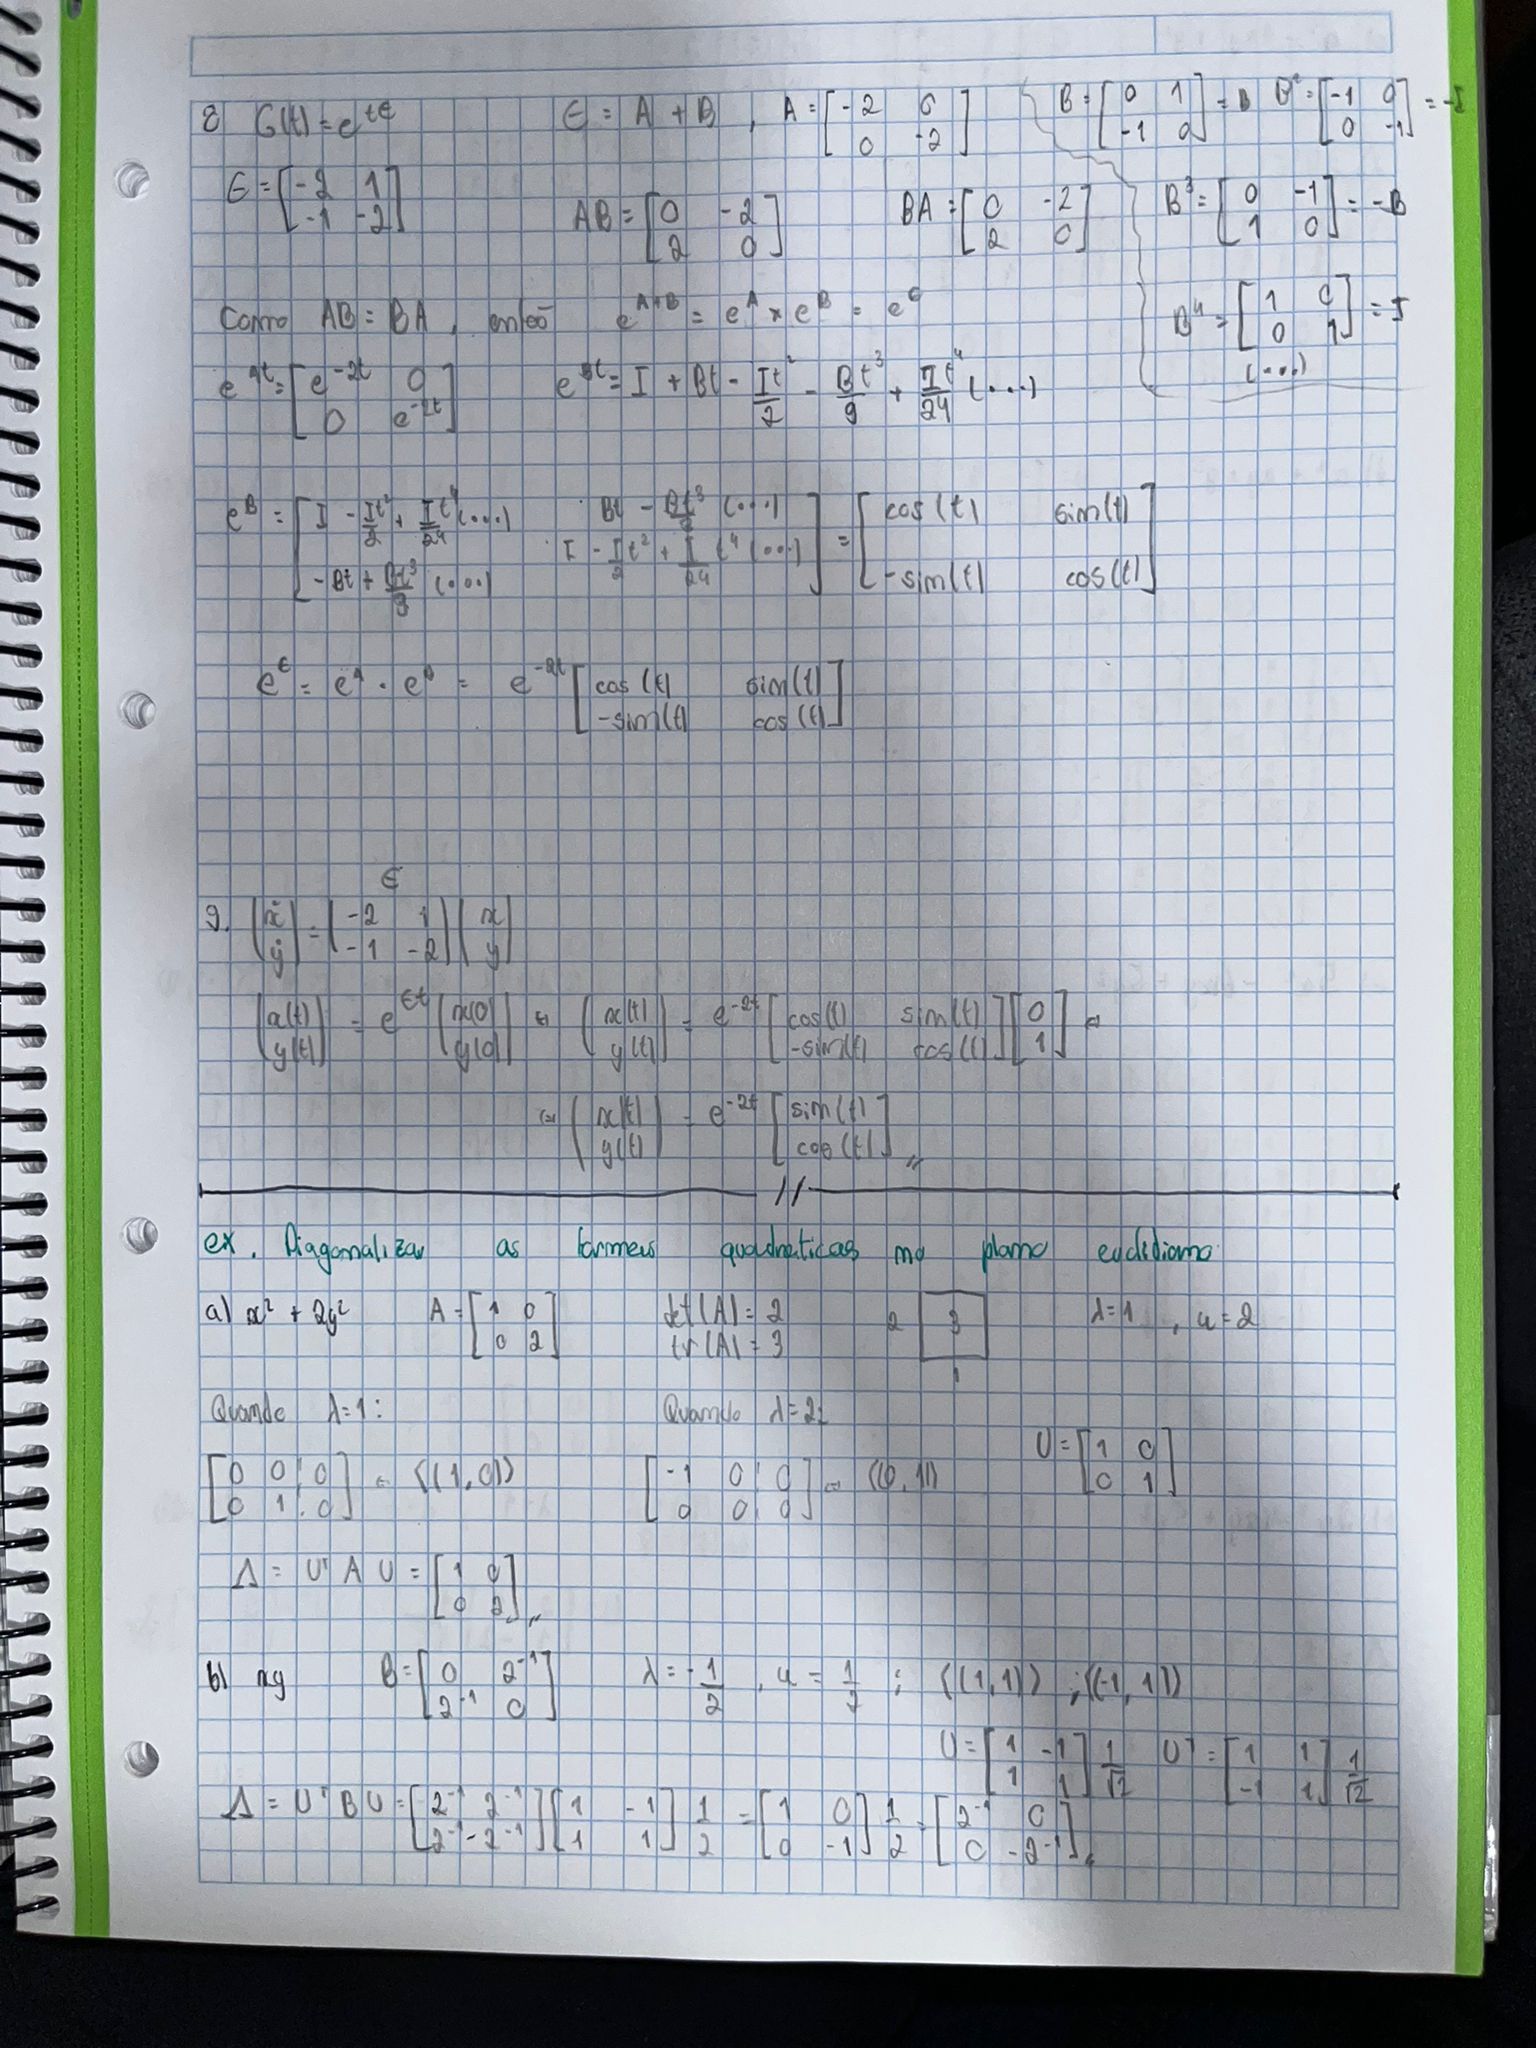 8 G(t) = e^{tC}   C = A + B , A = [-2 0; 0 -2]   B = [0 1; -1 0] = B   B² = [-1 0; 0 -1] = -I
C = [-2 1; -1 -2]   AB = [0 -2; 2 0]   BA = [0 -2; 2 0]   B³ = [0 -1; 1 0] = -B
Como AB = BA, então e^{A+B} = e^A × e^B = e^C   B⁴ = [1 0; 0 1] = I
(...)
e^{At} = [e^{-2t} 0; 0 e^{-2t}]   e^{Bt} = I + Bt - It²/2 - Bt³/9 + It⁴/24 (...)
e^B = [I - It²/2 + It⁴/24 (...)   Bt - Bt³/9 (...); -Bt + Bt³/9 (...)   I - I/2 t² + I/24 t⁴ (...)] = [cos(t) sin(t); -sin(t) cos(t)]
e^C = e^A · e^B = e^{-2t} [cos(t) sin(t); -sin(t) cos(t)]
C
9. (ẋ; ẏ) = (-2 1; -1 -2) (x; y)
(x(t); y(t)) = e^{Ct} (x(0); y(0)) ⇔ (x(t); y(t)) = e^{-2t} [cos(t) sin(t); -sin(t) cos(t)] [0; 1] ⇔
⇔ (x(t); y(t)) = e^{-2t} [sin(t); cos(t)] //
//
ex. Diagonalizar as formas quadráticas no plano euclidiano
a) x² + 2y²   A = [1 0; 0 2]   det(A) = 2   2 3   λ = 1 , u = 2
tr(A) = 3   1
Quando λ = 1:   Quando λ = 2:
[0 0 ¦ 0; 0 1 ¦ 0] = ⟨(1, 0)⟩   [-1 0 ¦ 0; 0 0 ¦ 0] = ⟨(0, 1)⟩   U = [1 0; 0 1]
Λ = U^T A U = [1 0; 0 2] //
b) xy   B = [0 2⁻¹; 2⁻¹ 0]   λ = -1/2 , u = 1/2 ; ⟨(1, 1)⟩ ; ⟨(-1, 1)⟩
U = [1 -1; 1 1] 1/√2   U^T = [1 1; -1 1] 1/√2
Λ = U^T B U = [2⁻¹ 2⁻¹; 2⁻¹ -2⁻¹] [1 -1; 1 1] 1/2 = [1 0; 0 -1] 1/2 = [2⁻¹ 0; 0 -2⁻¹] //